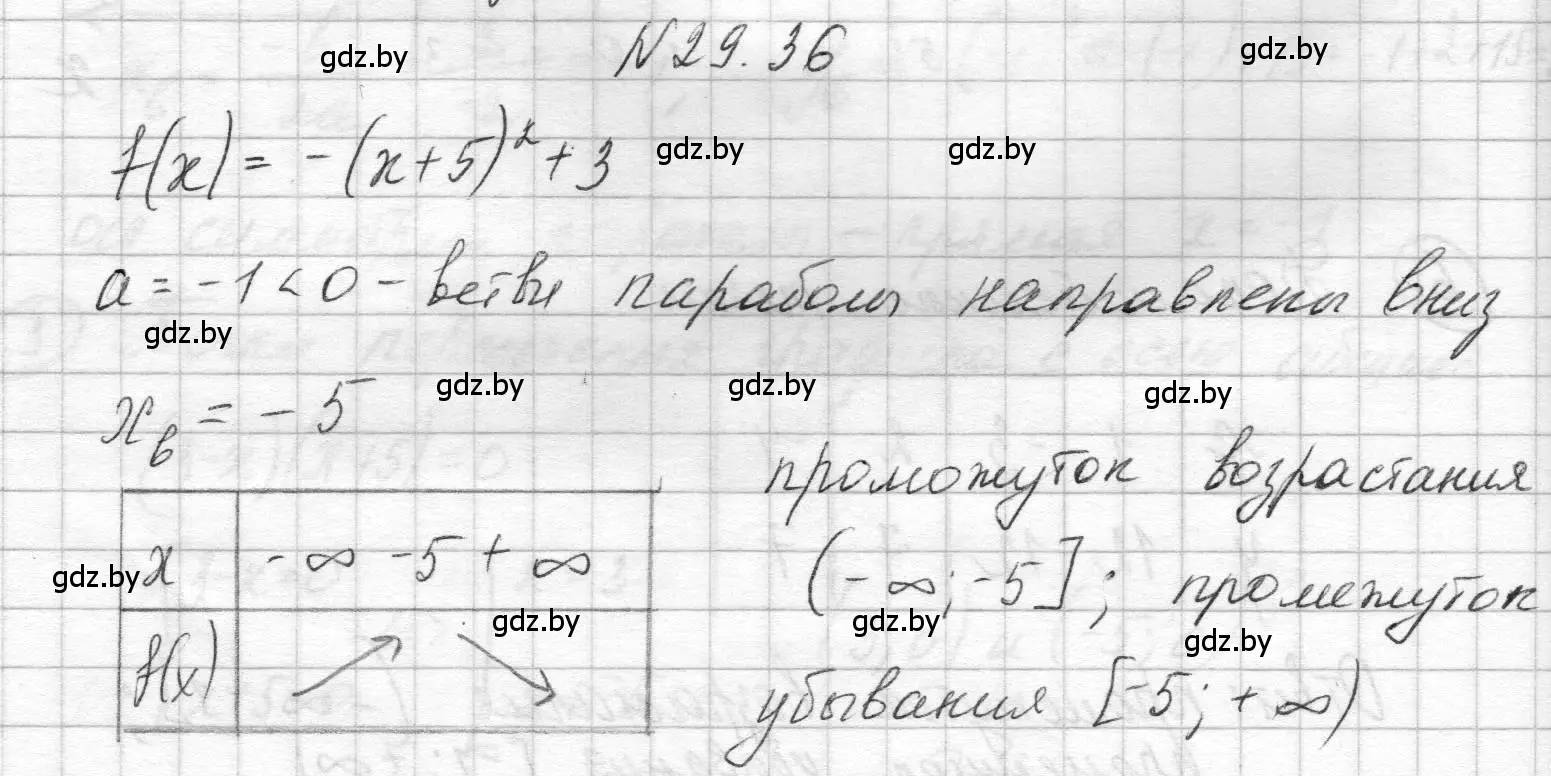 №29.36
gdz.by
gdz.by
f(x) = -(x+5)² + 3
gdz.by
gdz.by
a = -1 < 0 - ветви параболы направлены вниз
gdz.by
x_в = -5
gdz.by
gdz.by
gdz.by
x -∞ -5 +∞
gdz.by
f(x) ↗ ↘
gdz.by
проможуток возрастания
(-∞; -5]; промежуток
gdz.by
gdz.by
убывания [-5; +∞)